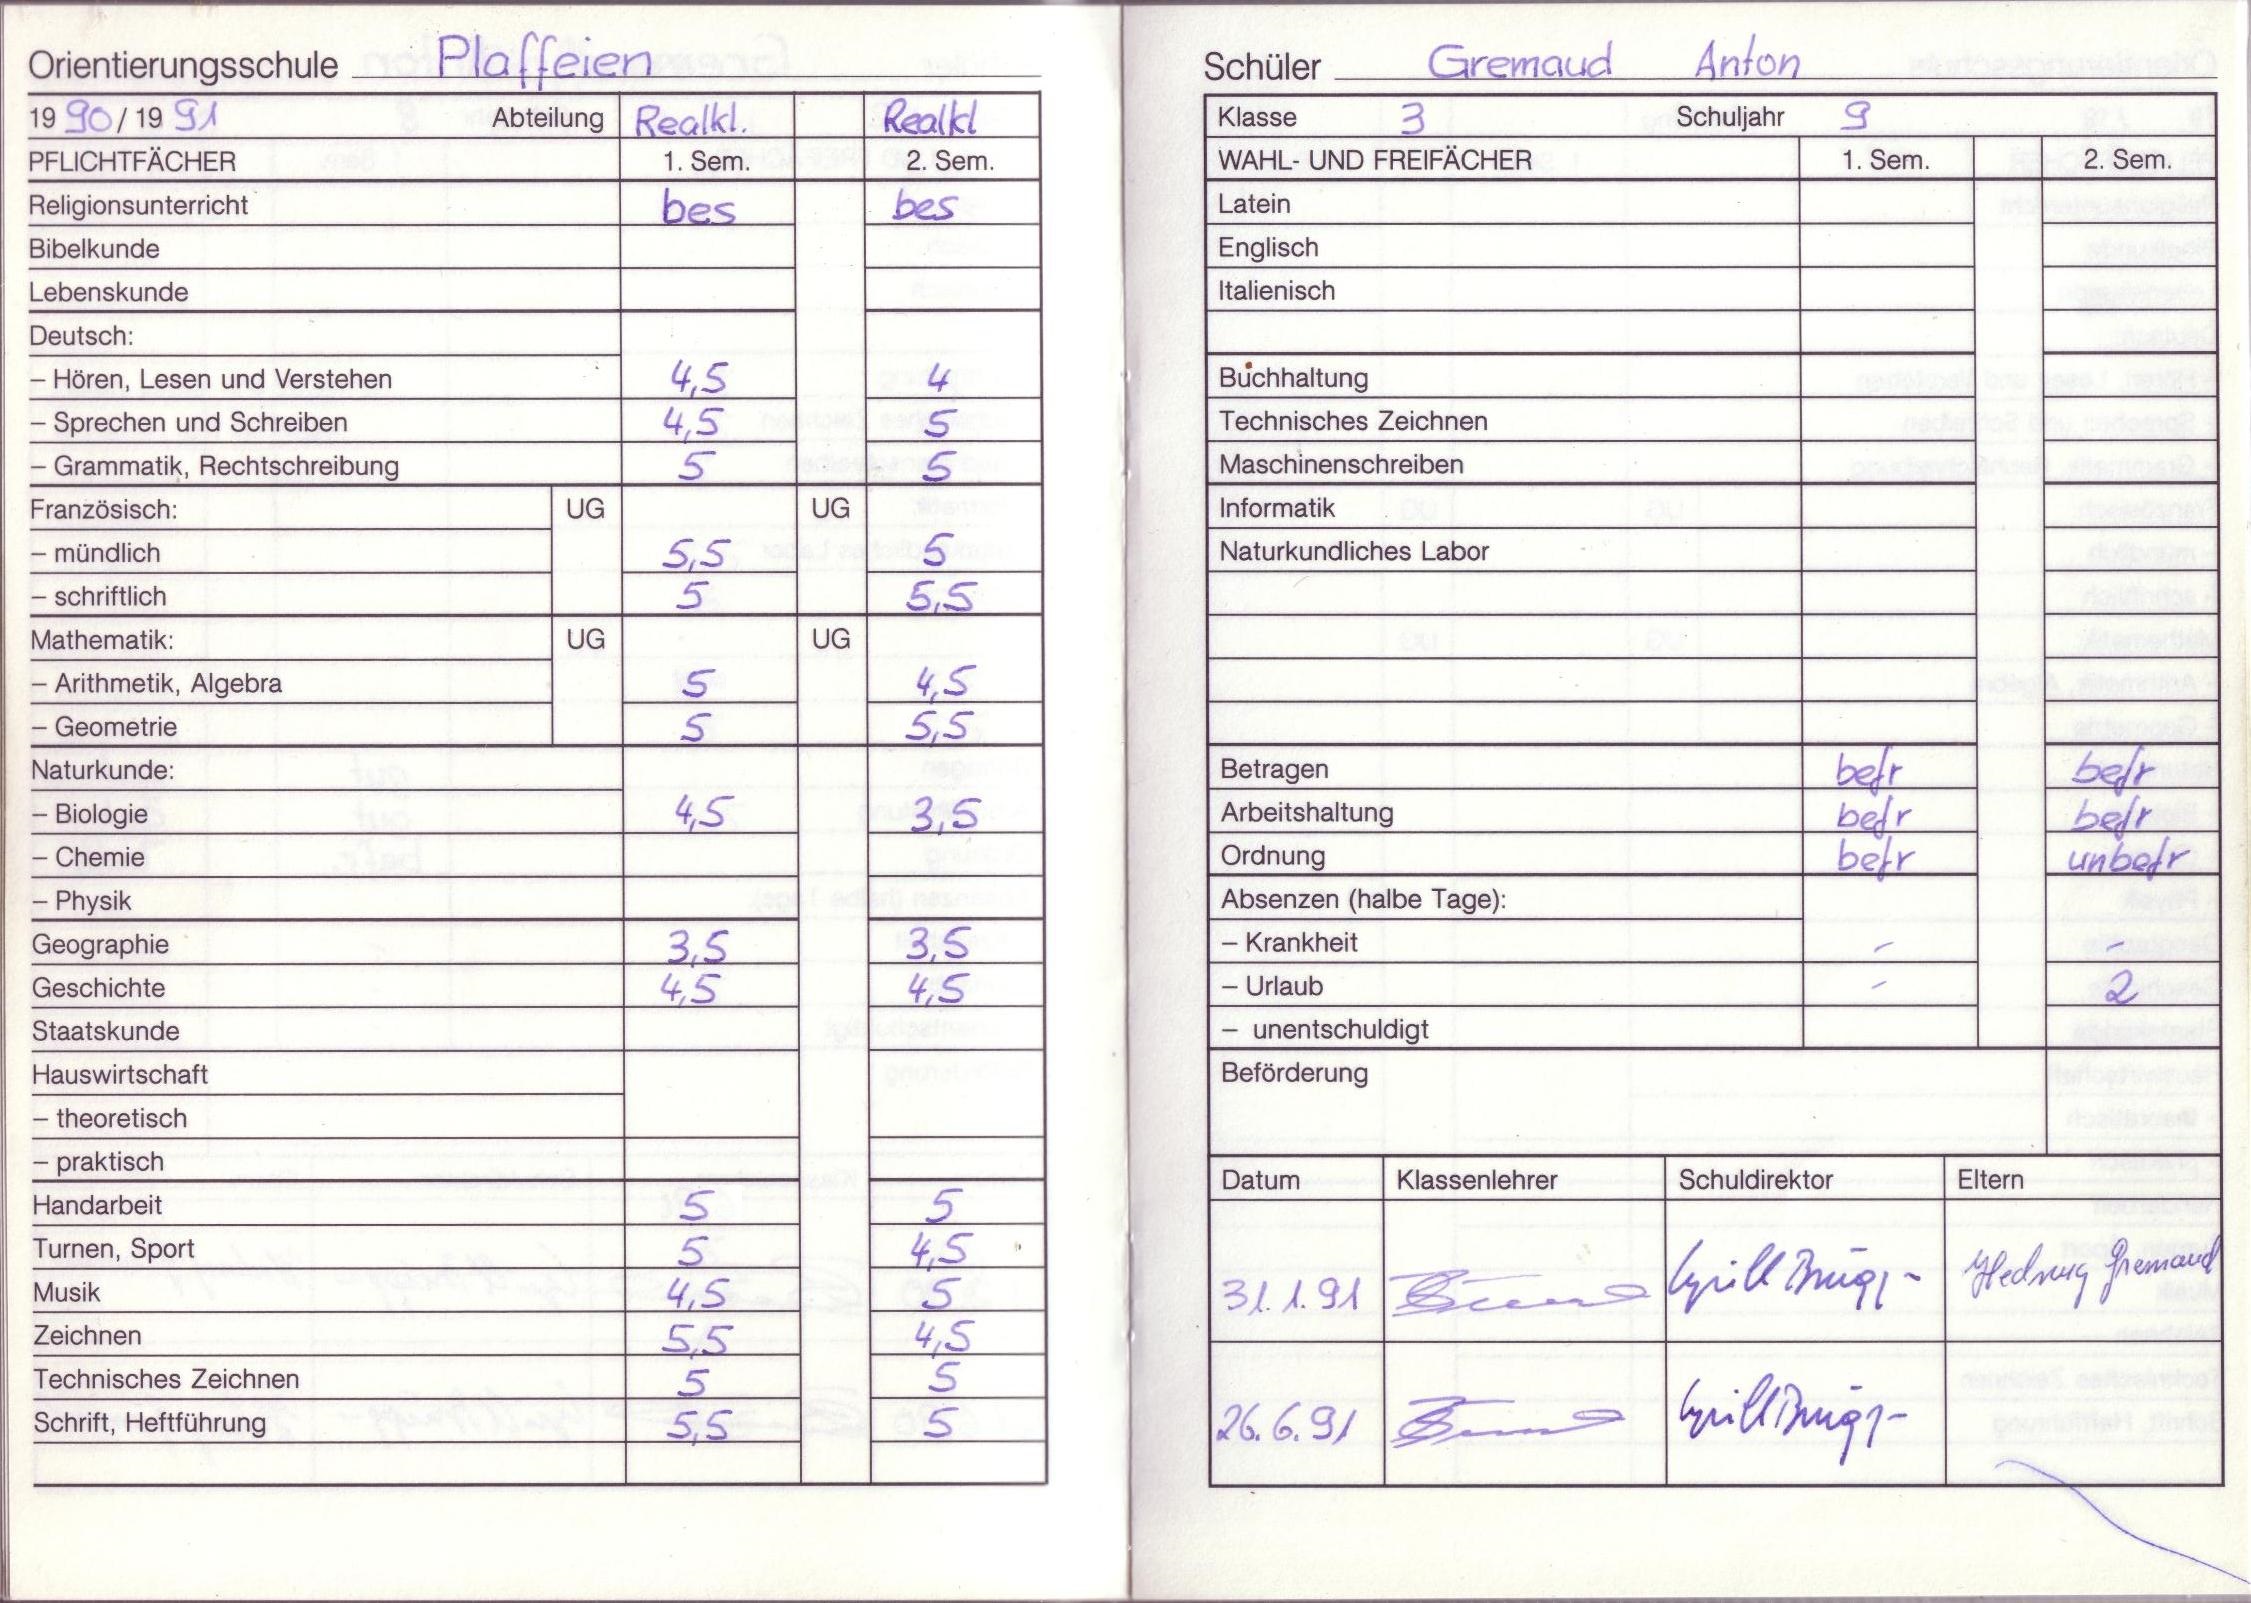 Orientierungsschule Plaffeien
1990 / 1991 Abteilung Realkl. Realkl
PFLICHTFÄCHER 1. Sem. 2. Sem.
Religionsunterricht bes bes
Bibelkunde
Lebenskunde
Deutsch:
– Hören, Lesen und Verstehen 4,5 4
– Sprechen und Schreiben 4,5 5
– Grammatik, Rechtschreibung 5 5
Französisch: UG UG
– mündlich 5,5 5
– schriftlich 5 5,5
Mathematik: UG UG
– Arithmetik, Algebra 5 4,5
– Geometrie 5 5,5
Naturkunde:
– Biologie 4,5 3,5
– Chemie
– Physik
Geographie 3,5 3,5
Geschichte 4,5 4,5
Staatskunde
Hauswirtschaft
– theoretisch
– praktisch
Handarbeit 5 5
Turnen, Sport 5 4,5
Musik 4,5 5
Zeichnen 5,5 4,5
Technisches Zeichnen 5 5
Schrift, Heftführung 5,5 5
Schüler Gremaud Anton
Klasse 3 Schuljahr 9
WAHL- UND FREIFÄCHER 1. Sem. 2. Sem.
Latein
Englisch
Italienisch
Buchhaltung
Technisches Zeichnen
Maschinenschreiben
Informatik
Naturkundliches Labor
Betragen befr befr
Arbeitshaltung befr befr
Ordnung befr unbefr
Absenzen (halbe Tage):
– Krankheit - -
– Urlaub - 2
– unentschuldigt
Beförderung
Datum Klassenlehrer Schuldirektor Eltern
31.1.91 Cyrill Brügg- Hedwig Gremaud
26.6.91 Cyrill Brügg-